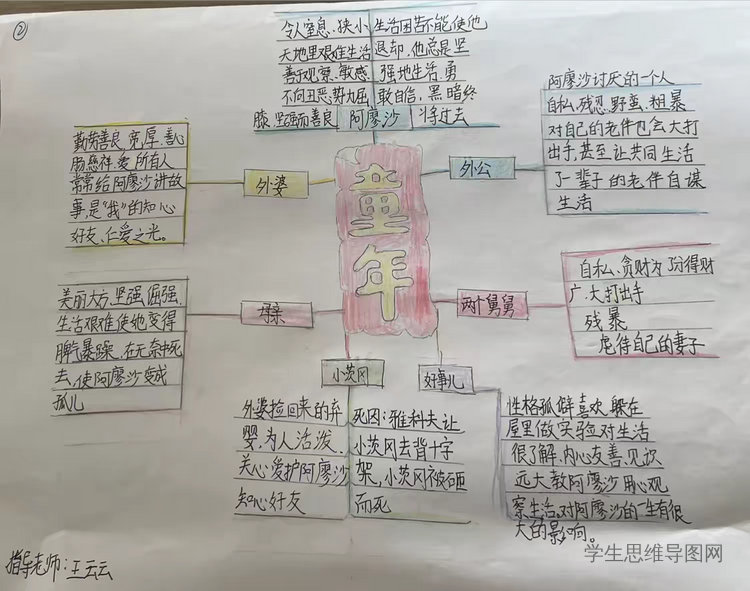 ②
令人窒息、狭小
天地里艰难生活
善于观察、敏感
不向丑恶势力屈
膝、坚强而善良
生活困苦不能使他
退却，他总是坚
强地生活、勇
敢自信，黑暗终
将过去
阿廖沙
童年
外婆
勤劳善良、宽厚、善心
肠慈祥、爱所有人
常常给阿廖沙讲故
事，是“我”的知心
好友、仁爱之光。
外公
阿廖沙讨厌的一个人
自私、残忍、野蛮、粗暴
对自己的老伴也会大打
出手，甚至让共同生活
了一辈子的老伴自谋
生活
母亲
美丽大方、坚强、倔强、
生活艰难使她变得
脾气暴躁，在无奈中死
去，使阿廖沙变成
孤儿
两个舅舅
自私、贪财为了分得财
广大打出手
残暴
虐待自己的妻子
小茨冈
外婆捡回来的弃
婴，为人活泼、
关心爱护阿廖沙
知心好友
死因：雅科夫让
小茨冈去背十字
架，小茨冈被砸
而死
好事儿
性格孤僻喜欢躲在
屋里做实验对生活
很了解，内心友善、见识
远大教阿廖沙用心观
察生活，对阿廖沙的一生有很
大的影响。
指导老师：王云云
学生思维导图网